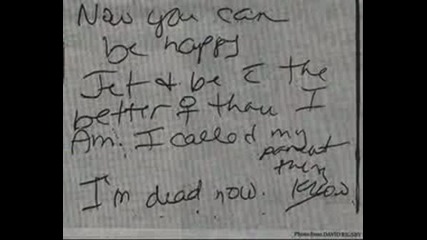 Now you can
be happy
Jet & be c̄ the
better ♀ than I
Am. I called my
parent
then
I'm dead now.
Photo from DAVID